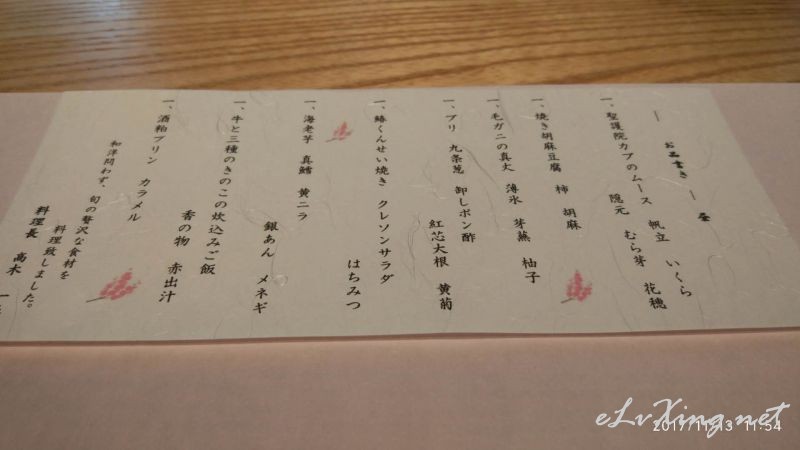 お品書き 昼
一、聖護院カブのムース 帆立 いくら
隠元 むら芽 花穂
一、焼き胡麻豆腐 柿 胡麻
一、毛ガニの真丈 薄氷 芽蕪 柚子
一、ブリ 九条葱 卸しポン酢
紅芯大根 黄菊
一、鰆くんせい焼き クレソンサラダ
はちみつ
一、海老芋 真鱈 黄ニラ
銀あん メネギ
一、牛と三種のきのこの炊込みご飯
香の物 赤出汁
一、酒粕プリン カラメル
和洋問わず、旬の贅沢な食材を
料理致しました。
料理長 高木
eLvXing.net
2017/11/13 11:54